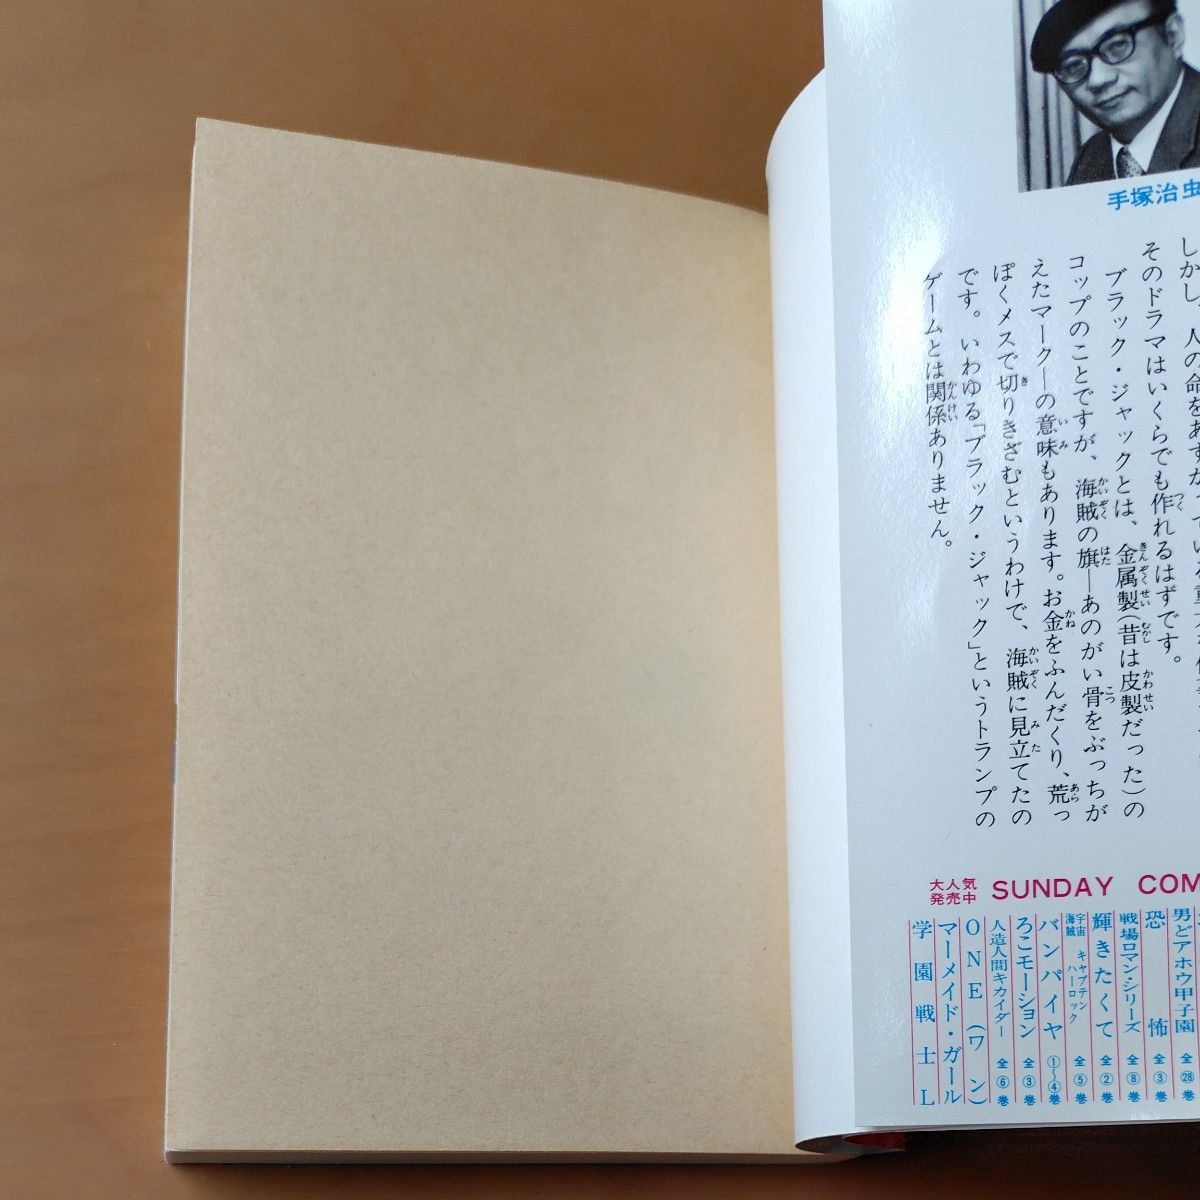 手塚治虫
しかし、人の命をあずか
そのドラマはいくらでも作れるはずです。
ブラック・ジャックとは、金属製(昔は皮製だった)の
コップのことですが、海賊の旗―あのがい骨をぶっちが
えたマーク―の意味もあります。お金をふんだくり、荒っ
ぽくメスで切りきざむというわけで、海賊に見立てたの
です。いわゆる「ブラック・ジャック」というトランプの
ゲームとは関係ありません。
大人気
発売中
SUNDAY COM
男どアホウ甲子園 全㉘巻
恐怖 全③巻
戦場ロマン・シリーズ 全⑧巻
輝きたくて 全②巻
宇宙海賊 キャプテンハーロック 全⑤巻
バンパイヤ ①〜④巻
ろこモーション 全③巻
人造人間キカイダー 全⑥巻
ONE(ワン)
マーメイド・ガール
学園戦士L